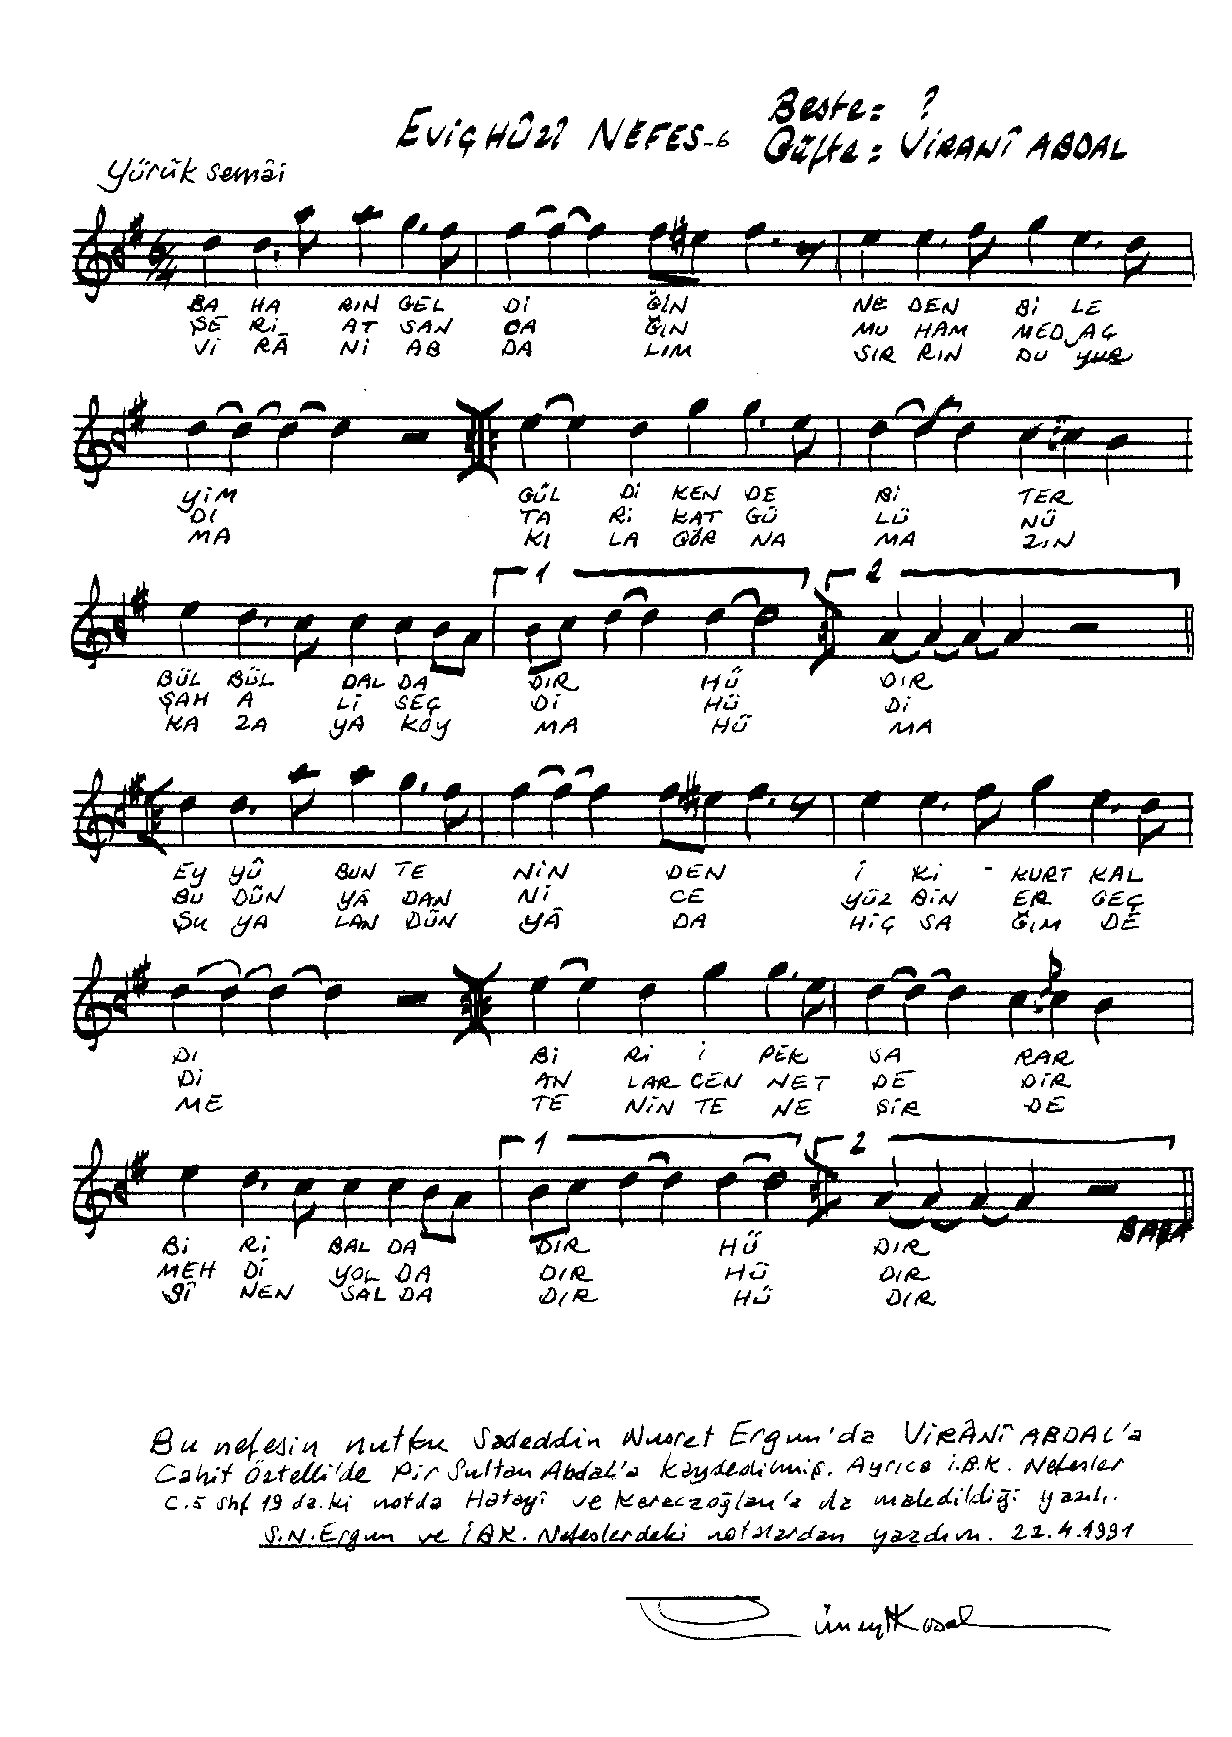 EVİÇHÛZÎ NEFES-6
Beste= ?
Güfte= VİRANÎ ABDAL
Yürük semâi
6/4
BA HA RIN GEL Dİ ĞİN NE DEN Bİ LE
ŞE Rİ AT SAN CA ĞIN MU HAM MED AÇ
Vİ RÂ Nİ AB DA LIM SIR RIN DU YUR
YİM GÜL Dİ KEN DE Bİ TER
DI TA Rİ KAT GÜ LÜ NÜ
MA KI LA GÖR NA MA ZIN
1 2
BÜL BÜL DAL DA DIR HÛ DIR
ŞAH A Lİ SEÇ Dİ HÛ Dİ
KA ZA YA KOY MA HÛ MA
EY YÛ BUN TE NİN DEN İ Kİ - KURT KAL
BU DÜN YÂ DAN Nİ CE YÜZ BİN ER GEÇ
ŞU YA LAN DÜN YÂ DA HİÇ SA ĞIM DE
DI Bİ Rİ İ PEK SA RAR
Dİ AN LAR CEN NET DE DİR
ME TE NİN TE NE ŞİR DE
1 2
Bİ Rİ BAL DA DIR HÛ DIR
MEH DÎ YOL DA DIR HÛ DIR
Sİ NEN SAL DA DIR HÛ DIR
Bu nefesin nutku Sadeddin Nusret Ergun'da VİRÂNÎ ABDAL'a
Cahit Öztelli'de Pir Sultan Abdal'a kaydedilmiş. Ayrıca İ.B.K. Nefesler
C.5 shf 19 da.ki notda Hatayî ve Karacaoğlan'a da maledildiği yazılı.
S.N.Ergun ve İ.B.K. Nefeslerdeki notalardan yazdım. 22.4.1991
Cüneyt Kosal